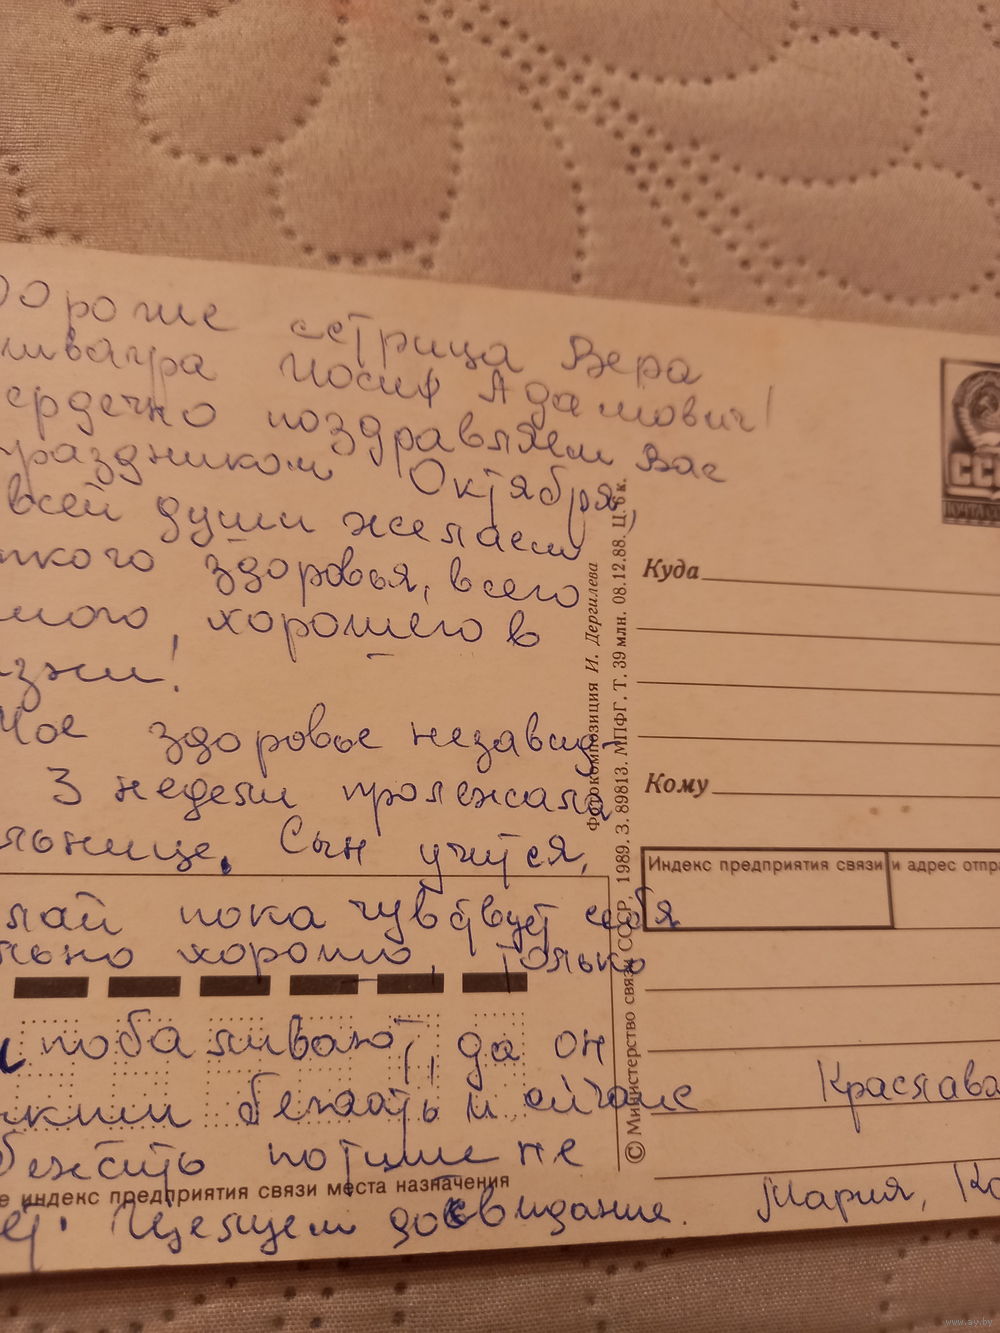 дорогие сестрица Вера
швагра Иосиф Адамович!
сердечно поздравляем Вас
праздником Октября,
всей души желаем
пкого здоровья, всего
мого, хорошего в
изни!
Мое здоровье незавид
3 недели пролежала
льнице. Сын учится,
лай пока чувствует себя
льно хорошо, только
и побаливают, да он
бегать и сейчас
бежить потише не
ет. Целуем досвидание. Мария, Ко
Краслава
СССР
Куда
Кому
Индекс предприятия связи и адрес отпра
е индекс предприятия связи места назначения
Фотокомпозиция И. Дергилева
© Министерство связи СССР. 1989. З. 89813. МПФГ. Т. 39 млн. 08.12.88. Ц. 6 к.
www.ay.by